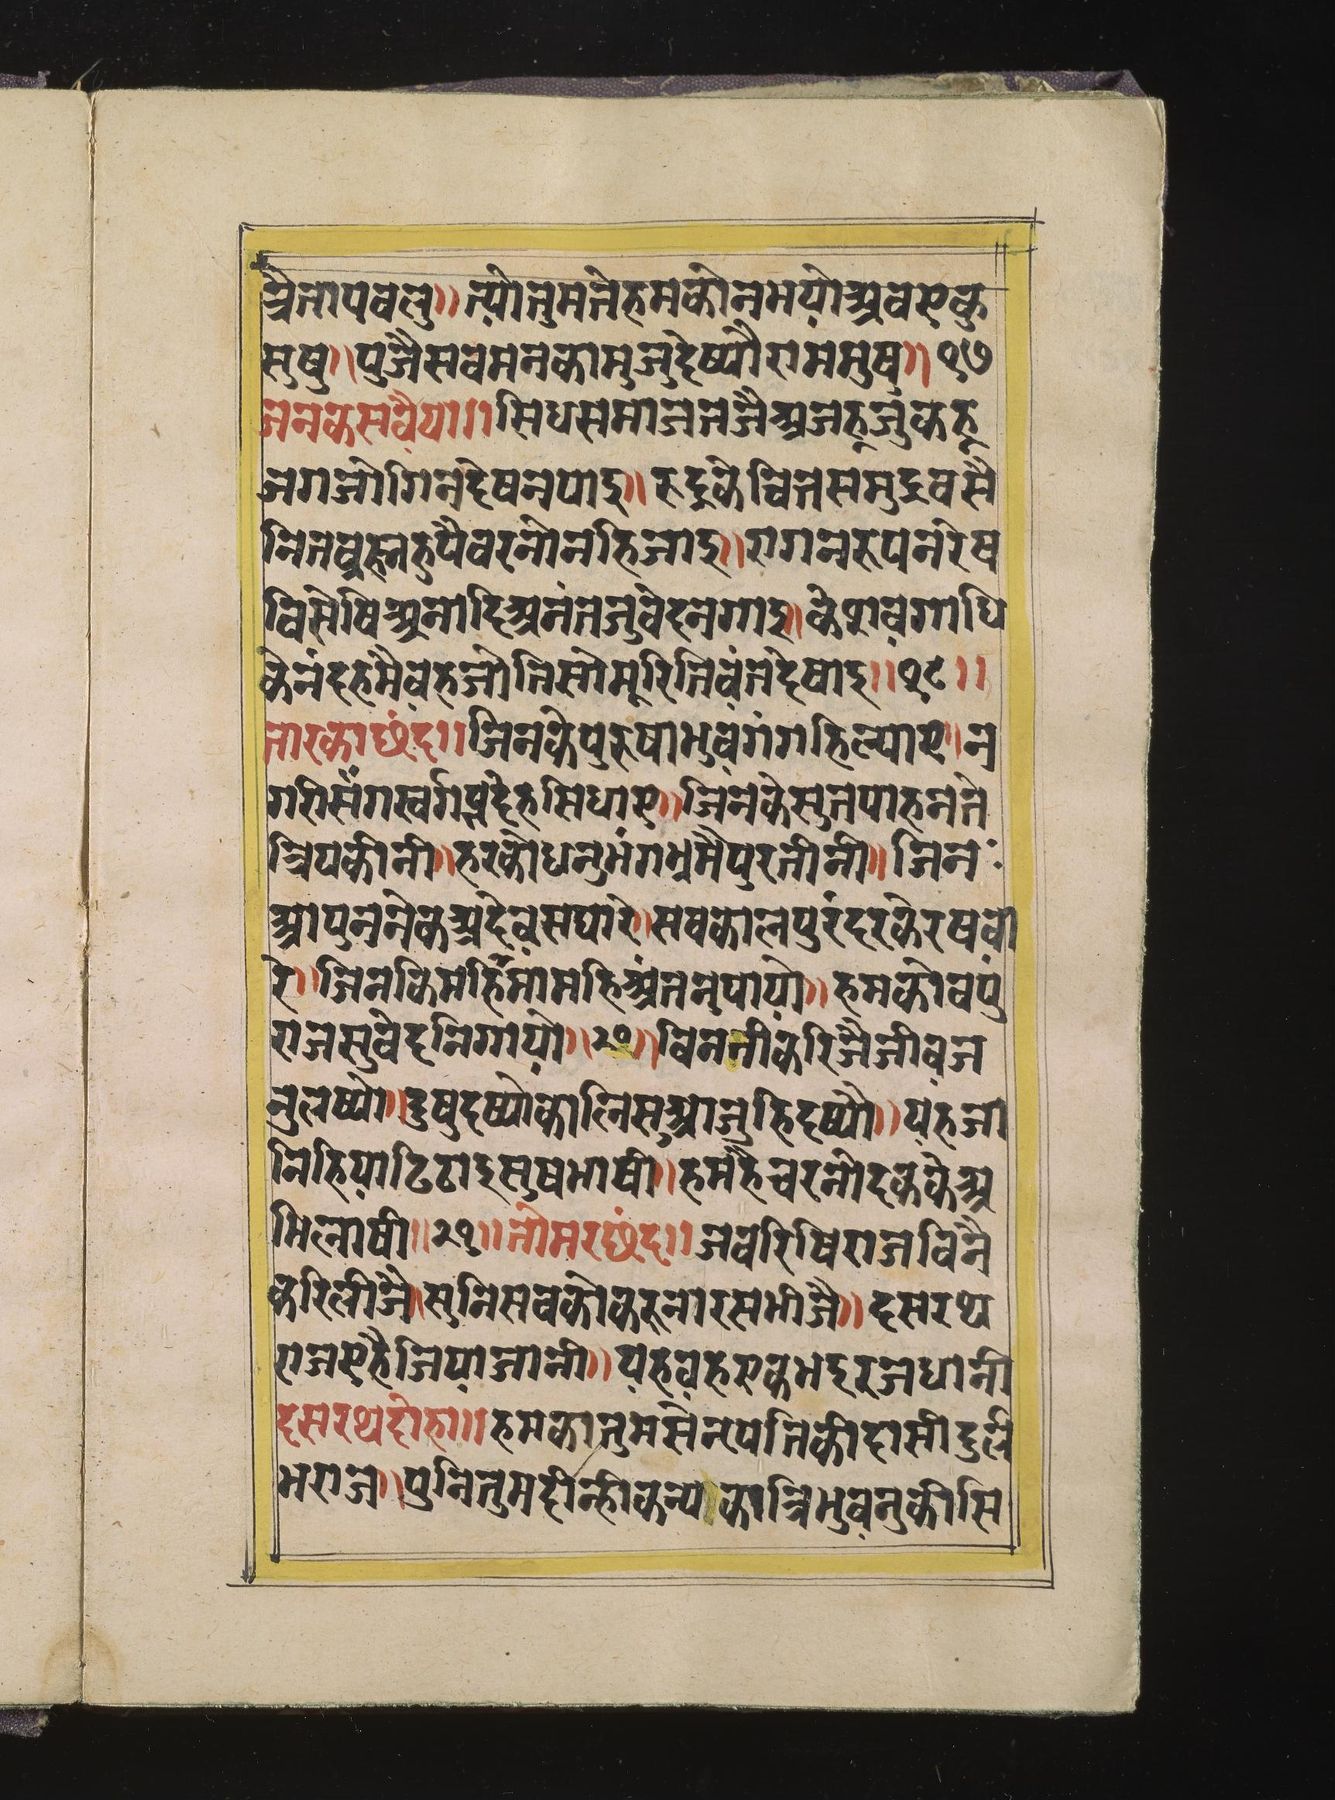 त्रैतापवलु॥ त्यौतुमतेहमकोनभयोअवएकु
सुषु॥ पुजैसवमनकामुजुदेष्यौराममुष॥ १७
जनकसवैया॥ सिधसमाजतजैअजहूजुंकहू
जगजोगिनदेषनपाइ॥ रुद्रकेचितसमुद्रवसै
नितव्रह्महुपैवरनोनहिजाइ॥ रागनरुपनरेष
विसेषिअनादिअनंतजुवेदनगाइ॥ केशवगाधि
केनंदहमैवहजोतिसोमूरितिवंतदेषाइ॥ १८॥
तारकाछंद॥ जिनकेपुरुषाभुवगंगहिल्याए॥ न
गरीसंगस्वर्गप्रदेहसिधाए॥ जिनकेसुतपाहनते
त्रियकीनी॥ हरकोधनुभंगभ्रमैपुरतीनी॥ जिन
आपुननेकअदेवसघारे॥ सवकालपुरंदरकेरषवा
रे॥ जिनकिमहिंमांमहिअंतनुपायो॥ हमकोवपुं
राजसुवेदनिगायो॥ २०॥ विनतीकरिजैजीवज
नुलष्यो॥ दुषुदष्योकालिसुआजुहिदष्यौ॥ यहजा
निहियाढिठाइसुषभाषी॥ हमहैचरनोदककेअ
भिलाषी॥ २१॥ तोमरछंद॥ जवरिषिराजविनै
करिलीजै॥ सुनिसवकोकरूनारसभीजै॥ दसरथ
राजएहैजियाजानी॥ यहवहएकभइरजधानी
दसरथदोहा॥ हमकातुमसेनपेतिकीदासीदुर्ल
भराज॥ पुनितुमदीन्हीकन्यकात्रिभुवनुकीसि